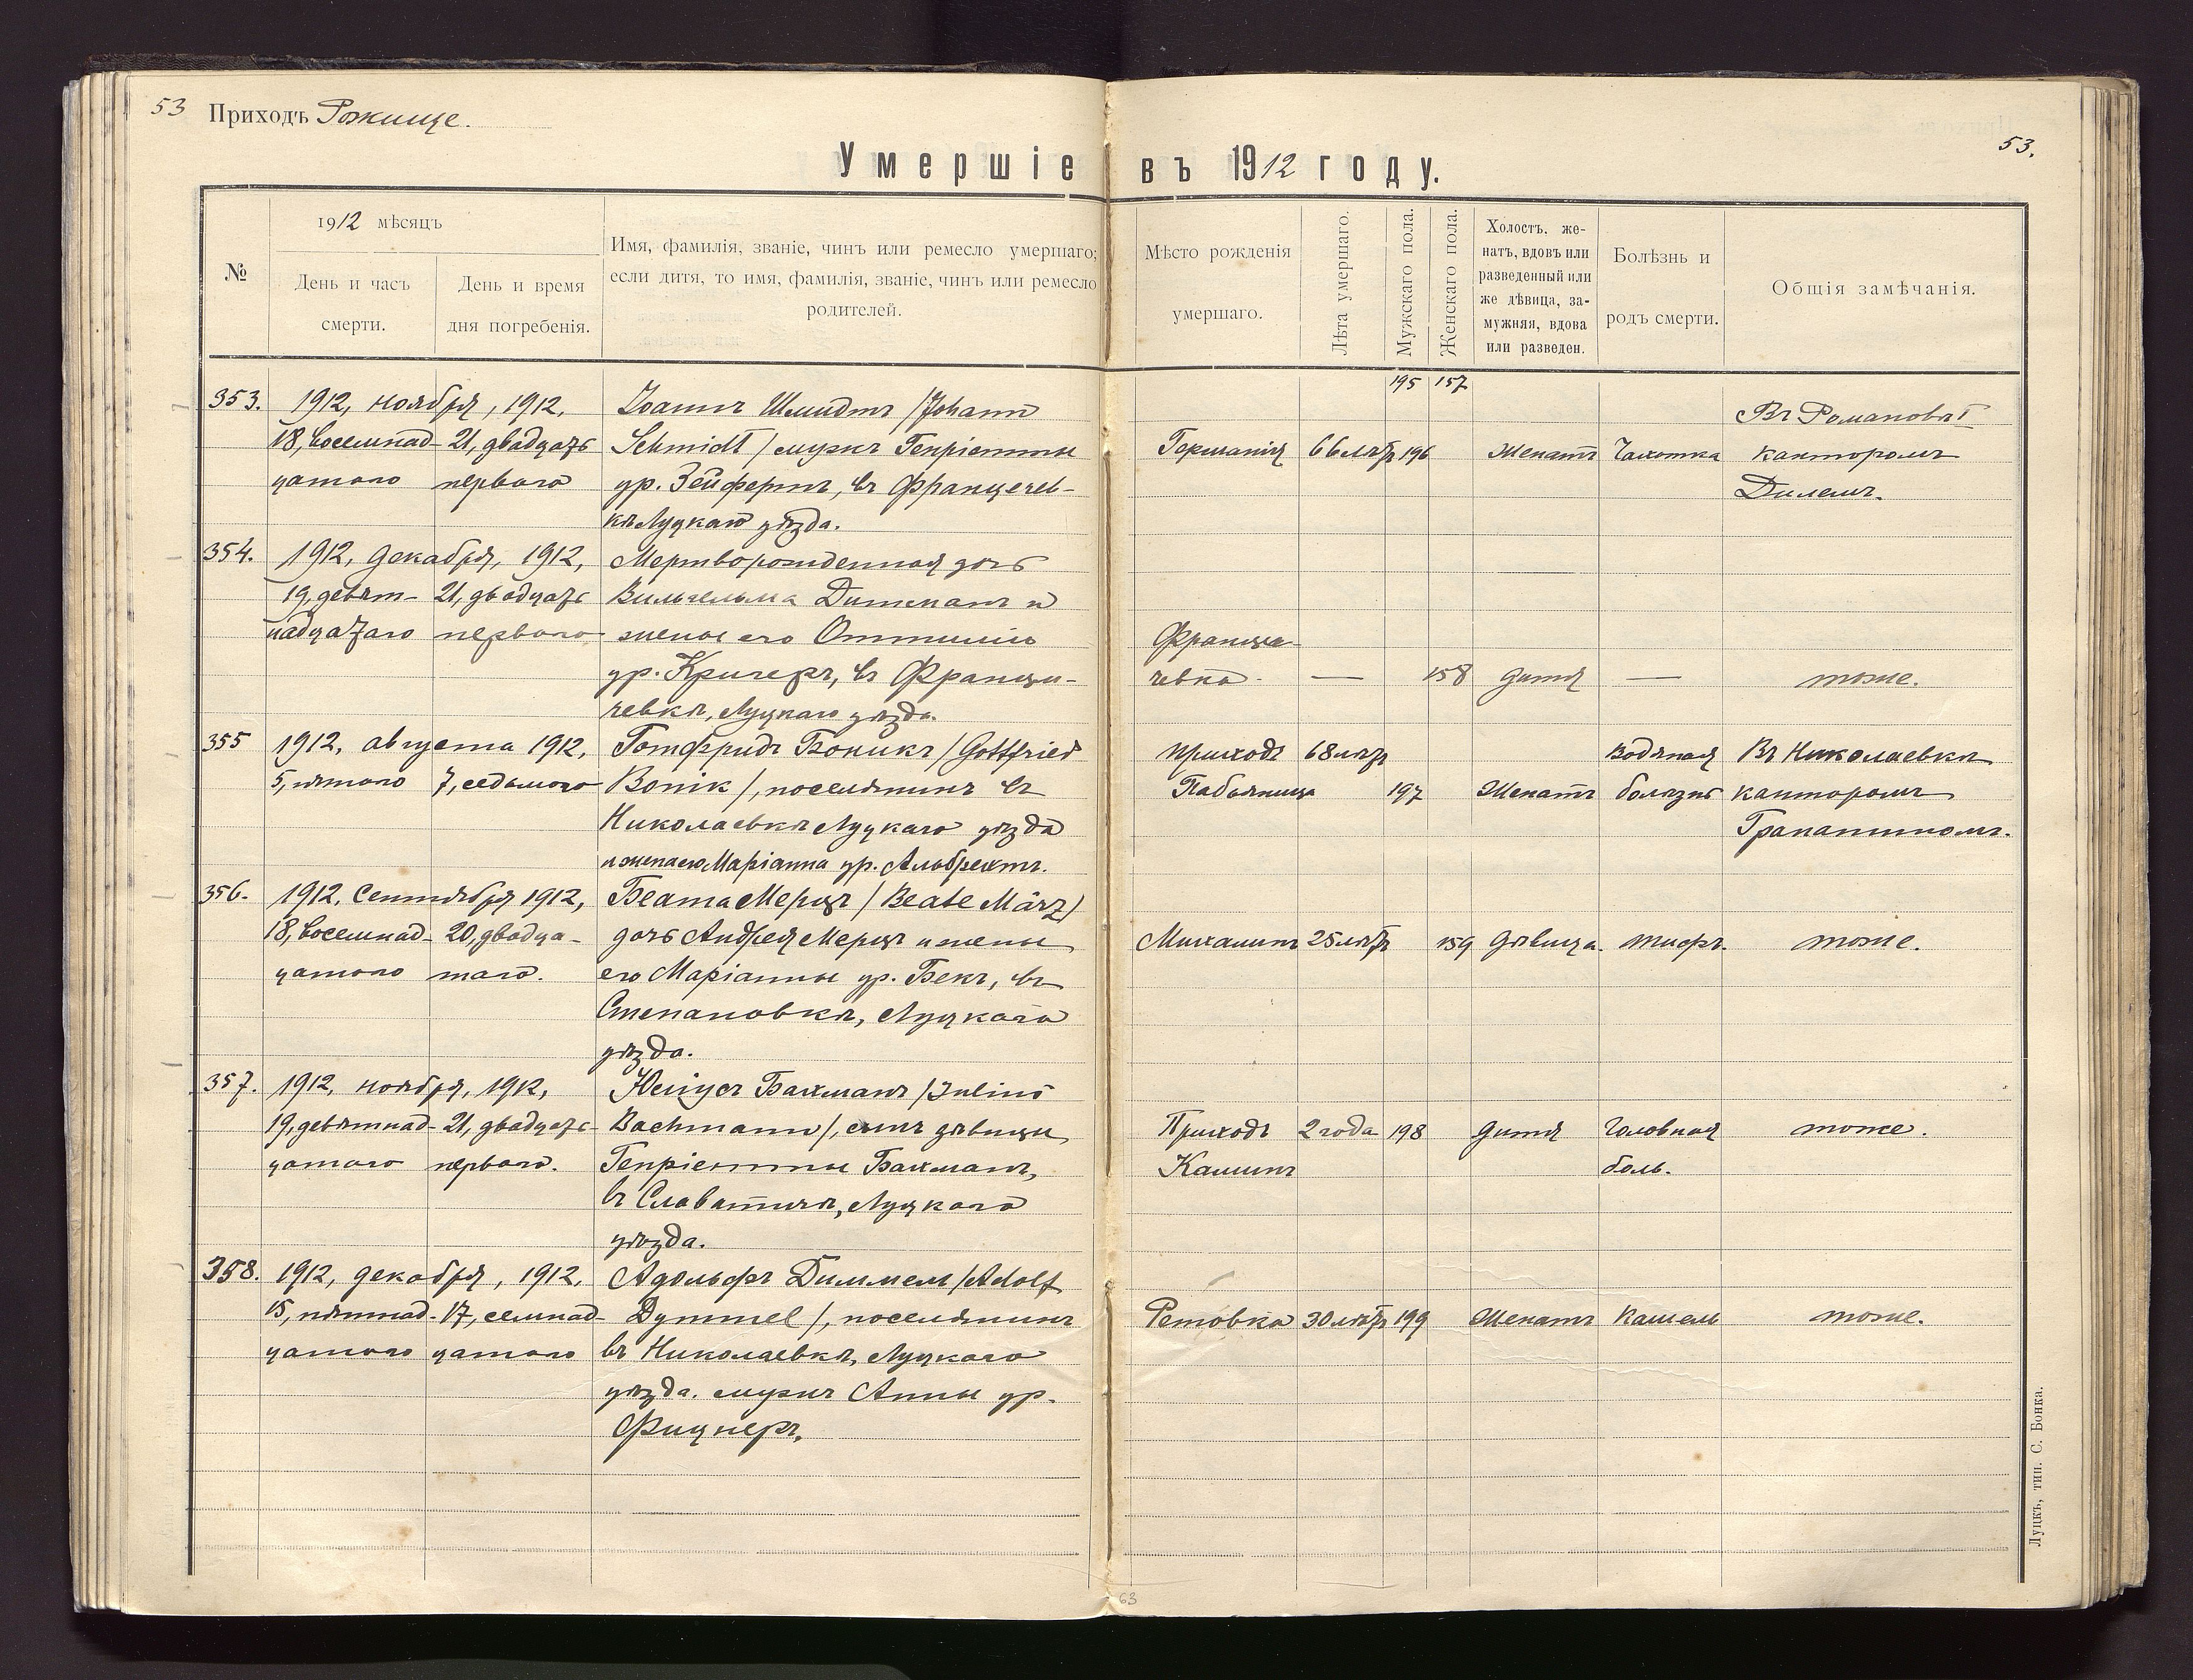 53 Приходъ Рожище.
53.
Умершіе въ 1912 году.
№
1912 мѣсяцъ
День и часъ смерти.
День и время дня погребенія.
Имя, фамилія, званіе, чинъ или ремесло умершаго;
если дитя, то имя, фамилія, званіе, чинъ или ремесло
родителей.
Мѣсто рожденія
умершаго.
Лѣта умершаго.
Мужскаго пола.
Женскаго пола.
Холостъ, же-
натъ, вдовъ или
разведенный или
же дѣвица, за-
мужняя, вдова
или разведен.
Болѣзнь и
родъ смерти.
Общія замѣчанія.
195 157
353. 1912, ноября, 1912, Іоаннъ Шмидтъ /Johann Въ Романовкѣ I
18, восемнад- 21, двадцать Schmidt/ мужъ Генріетты Германія 66 лѣтъ 196 Женатъ Чахотка канторомъ
цатого перваго ур. Зейфертъ, въ Францечев- Дилемъ.
кѣ Луцкаго уѣзда.
354. 1912, декабря, 1912, Мертворожденная дочь
19, девят- 21, двадцать Вильгельма Дитманъ и
надцатаго перваго жены его Оттиліи Франце-
ур. Кригеръ, въ Франци- чевка. — 158 дитя — тоже.
чевкѣ, Луцкаго уѣзда.
355 1912, августа 1912, Готфридъ Боникъ /Gottfried приходъ 68 лѣтъ Водяная Въ Николаевкѣ
5, пятого 7, седьмого Bonik/, поселянинъ въ Пабьяница 197 Женатъ болѣзнь канторомъ
Николаевкѣ Луцкаго уѣзда
и жена его Маріанна ур. Альбрехтъ.
356. 1912, Сентября 1912, Беата Мерцъ /Beate März/
18, восемнад- 20, двадца- дочь Андрея Мерцъ и жены Михалинъ 25 лѣтъ 159 дѣвица. тифъ. тоже.
цатого таго. его Маріанны ур. Бекъ, въ
Степановкѣ, Луцкаго
уѣзда.
357. 1912, ноября, 1912, Юліусъ Бахманъ /Julius
19, девятнад- 21, двадцать Bachmann/, сынъ дѣвицы Приходъ 2 года 198 дитя Головная тоже.
цатого перваго. Генріетты Бахманъ, Калишъ боль.
въ Славатичи, Луцкаго
уѣзда.
358. 1912, декабря, 1912, Адольфъ Диммель /Adolf
15, пятнад- 17, семнад- Dymmel/, поселянинъ Ретовка 30 лѣтъ 199 Женатъ Кашель тоже.
цатого цатого въ Николаевкѣ, Луцкаго
уѣзда. мужъ Анны ур.
Фицнеръ.
Луцкъ, тип. С. Бонка.
63